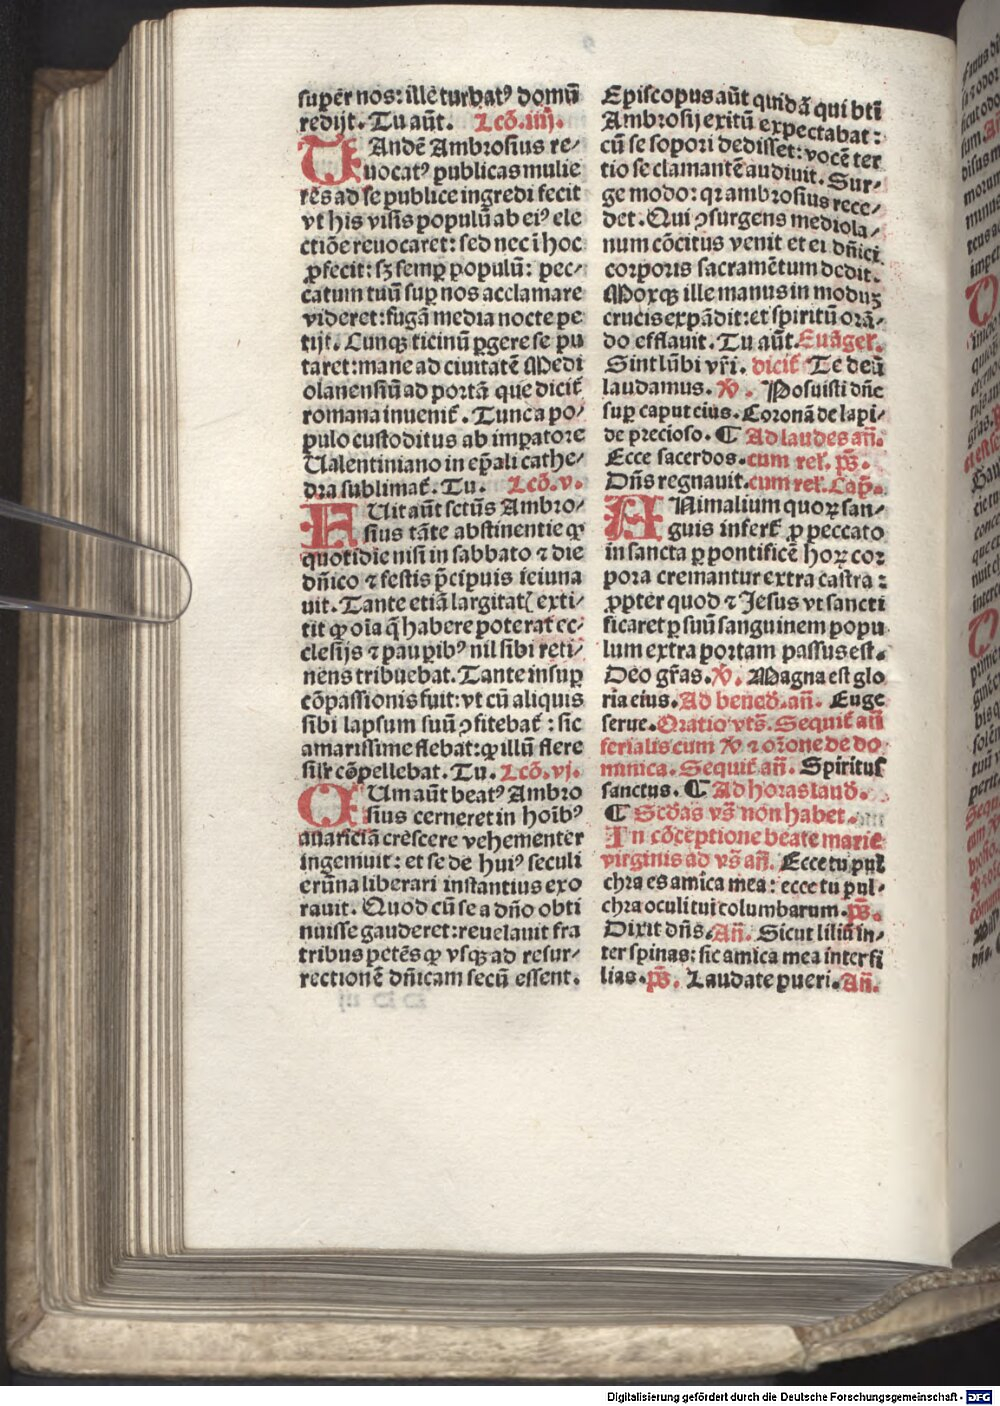 super nos: ille turbatꝰ domū
redijt. Tu aūt. Lcō.iiij.
TAndē Ambrosius re⸗
uocatꝰ publicas mulie
res ad se publice ingredi fecit
vt his visis populū ab eiꝰ ele
ctiōe reuocaret: sed nec ī hoc
ꝓfecit: sꝫ semꝑ populū: pec⸗
catum tuū suꝑ nos acclamare
videret: fugā media nocte pe
tijt. Cunqꝫ ticinū ꝑgere se pu
taret: mane ad ciuitatē Medi
olanensiū ad portā que dicit̄
romana inuenit̄. Tunc a po⸗
pulo custoditus ab impatore
Ualentiniano in ep̄ali cathe⸗
dra sublimat̄. Tu. Lcō.v.
FUit aūt sctūs Ambro⸗
sius tāte abstinentie ꝙ
quotidie nisi in sabbato ⁊ die
dn̄ico ⁊ festis p̄cipuis ieiuna
uit. Tante etiā largitatꝭ exti⸗
tit ꝙ oīa q̄ habere poterat ec⸗
clesijs ⁊ pauꝑibꝰ nil sibi reti⸗
nens tribuebat. Tante insuꝑ
cōpassionis fuit: vt cū aliquis
sibi lapsum suū ꝯfitebat̄: sic
amarissime flebat: ꝙ illū flere
sil'r cōpellebat. Tu. Lcō.vj.
CUm aūt beatꝰ Ambro
sius cerneret in hoībꝰ
auariciā crescere vehementer
ingemuit: et se de huiꝰ seculi
erūna liberari instantius exo
rauit. Quod cū se a dn̄o obti
nuisse gauderet: reuelauit fra
tribus petēs ꝙ vsqꝫ ad resur⸗
rectionē dn̄icam secū essent.
Episcopus aūt quidā qui bti
Ambrosij exitū expectabat:
cū se sopori dedisset: vocē ter
tio se clamantē audiuit. Sur⸗
ge modo: qꝛ ambrosius rece⸗
det. Qui ꝯsurgens mediola⸗
num cōcitus venit et ei dn̄ici
corporis sacramētum dedit.
Moxqꝫ ille manus in moduꝫ
crucis expādit: et spiritū orā⸗
do efflauit. Tu aūt. Euāger.
Sint lūbi vr̄i. dicit̄ Te deū
laudamus. ℣. Posuisti dn̄e
suꝑ caput eius. Coronā de lapi⸗
de precioso. ¶ Ad laudes an̄.
Ecce sacerdos. cum rel'. ps̄.
Dn̄s regnauit. cum rel'. Cap̄.
ANimalium quoꝝ san⸗
guis infert̄ ꝓ peccato
in sancta ꝑ pontificē hoꝝ coꝛ
pora cremantur extra castra:
ꝓpter quod ⁊ Jesus vt sancti
ficaret ꝑ suū sanguinem popu
lum extra portam passus est.
Deo gr̄as. ℣. Magna est glo
ria eius. Ad bened̄. an̄. Euge
serue. Oratio vts̄. Sequit̄ an̄
ferialis cum ℣ ⁊ or̄one de do
minica. Sequit̄ an̄. Spiritus
sanctus. ¶ Ad horas laud̄.
¶ Scd̄as vs̄ non habet.
In cōceptione beate marie
virginis ad vs̄ an̄. Ecce tu pul
chra es amica mea: ecce tu pul⸗
chra oculi tui columbarum. ps̄.
Dixit dn̄s. An̄. Sicut liliū in⸗
ter spinas: sic amica mea inter fi
lias. ps̄. Laudate pueri. An̄.
Digitalisierung gefördert durch die Deutsche Forschungsgemeinschaft - DFG